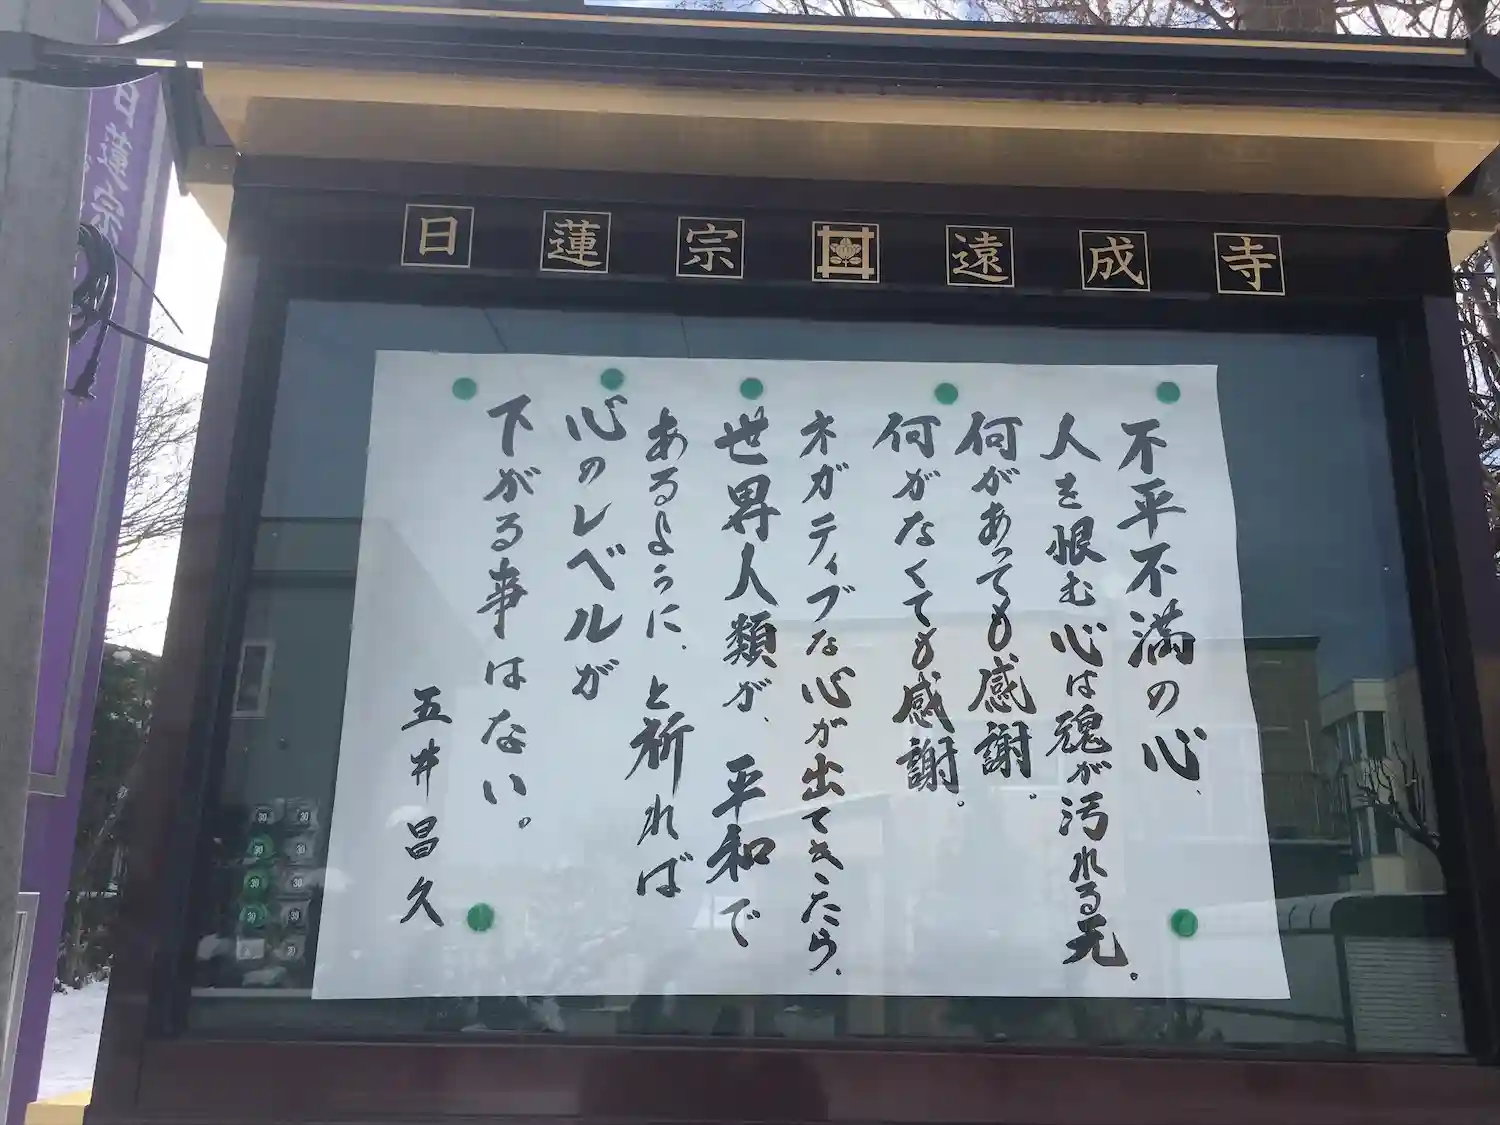 日蓮宗 遠成寺
不平不満の心、
人を恨む心は魂が汚れる元。
何があっても感謝。
何がなくても感謝。
ネガティブな心が出てきたら、
世界人類が、平和で
あるように、と祈れば
心のレベルが
下がる事はない。
五井昌久
日蓮宗